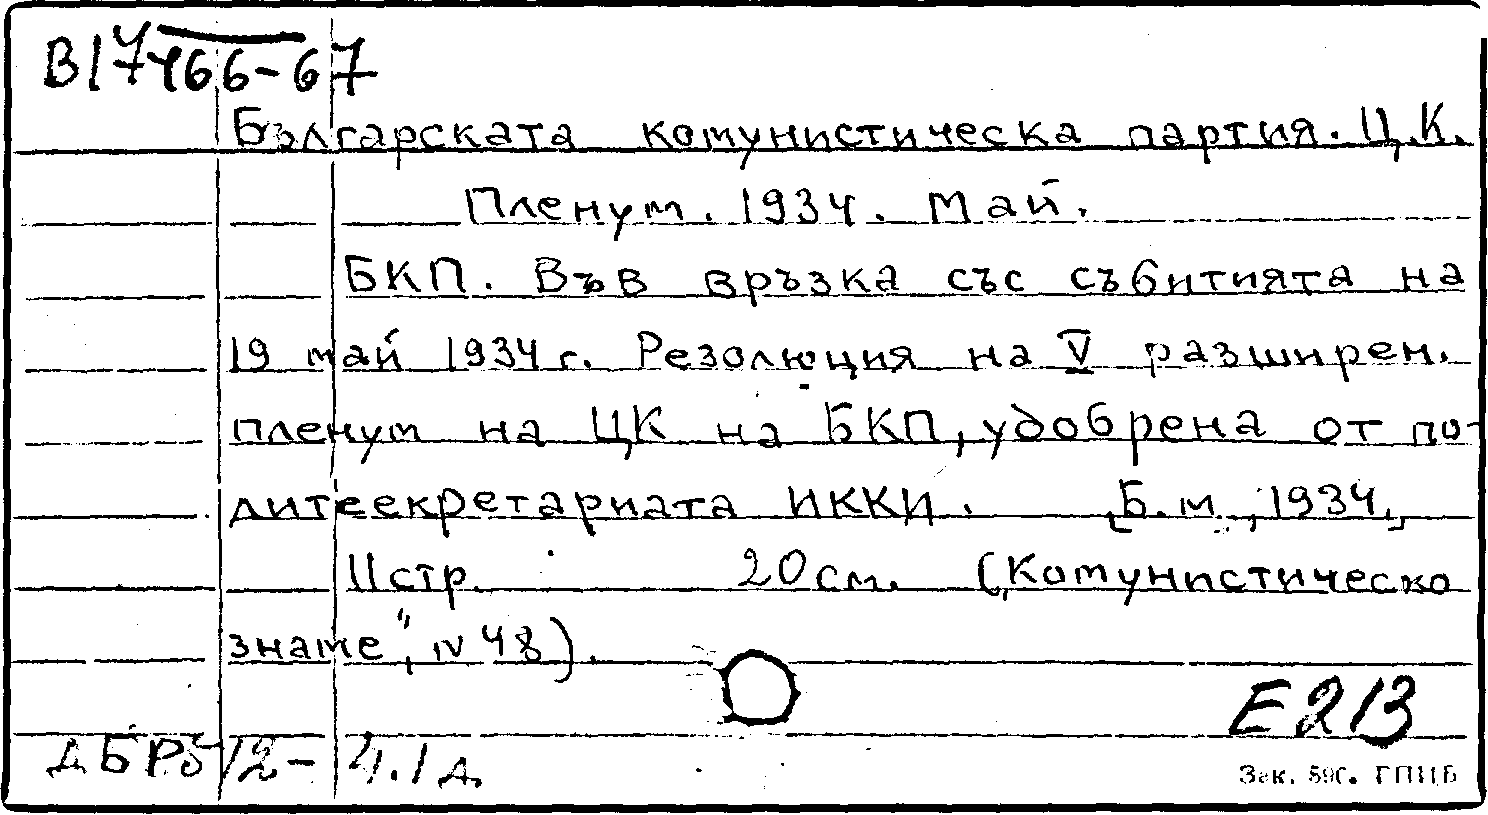 В17466-67
Българската комунистическа партия. Ц.К.
Пленум. 1934. Май.
БКП. Във връзка със събитията на
19 май 1934 г. Резолюция на V разширен.
пленум на ЦК на БКП, удобрена от по-
литсекретариата ИККИ. [Б.м., 1934]
11 стр. 20 см. („Комунистическо
знаме", N 48).
Е213
4.1д.
Зак. 590. ГПИБ